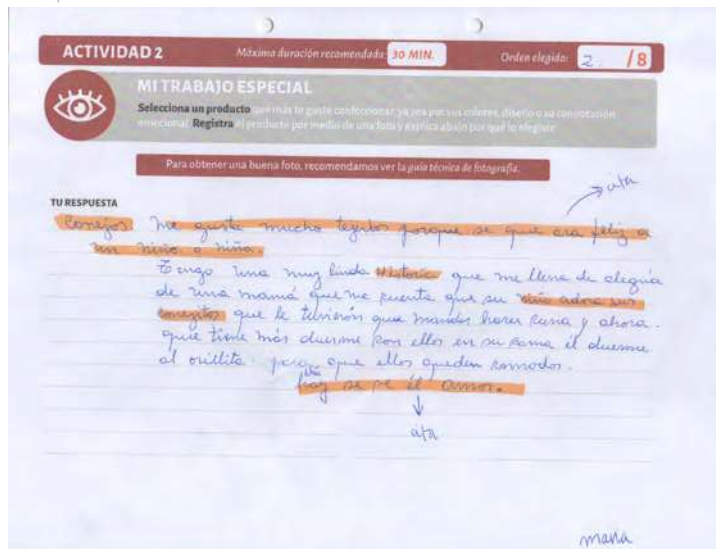 ACTIVIDAD 2 Máxima duración recomendada: 30 MIN. Orden elegido: 2. /8
MI TRABAJO ESPECIAL
Selecciona un producto que más te guste confeccionar, ya sea por sus colores, diseño o su connotación
emocional. Registra el producto por medio de una foto y explica abajo por qué lo elegiste.
Para obtener una buena foto, recomendamos ver la guía técnica de fotografía.
cita
TU RESPUESTA
Conejos. me gusta mucho tejerlos porque se que ara feliz a
un niño o niña.
Tengo una muy linda Historia que me llena de alegria
de una mamá que me cuenta que su niño adora sus
conejitos que le tuvierón que mandar hacer cuna y ahora.
que tiene más duerme con ellos en su cama el duerme
al orillita. para que ellos queden comodos.
hay se ve el amor.
cita
maria